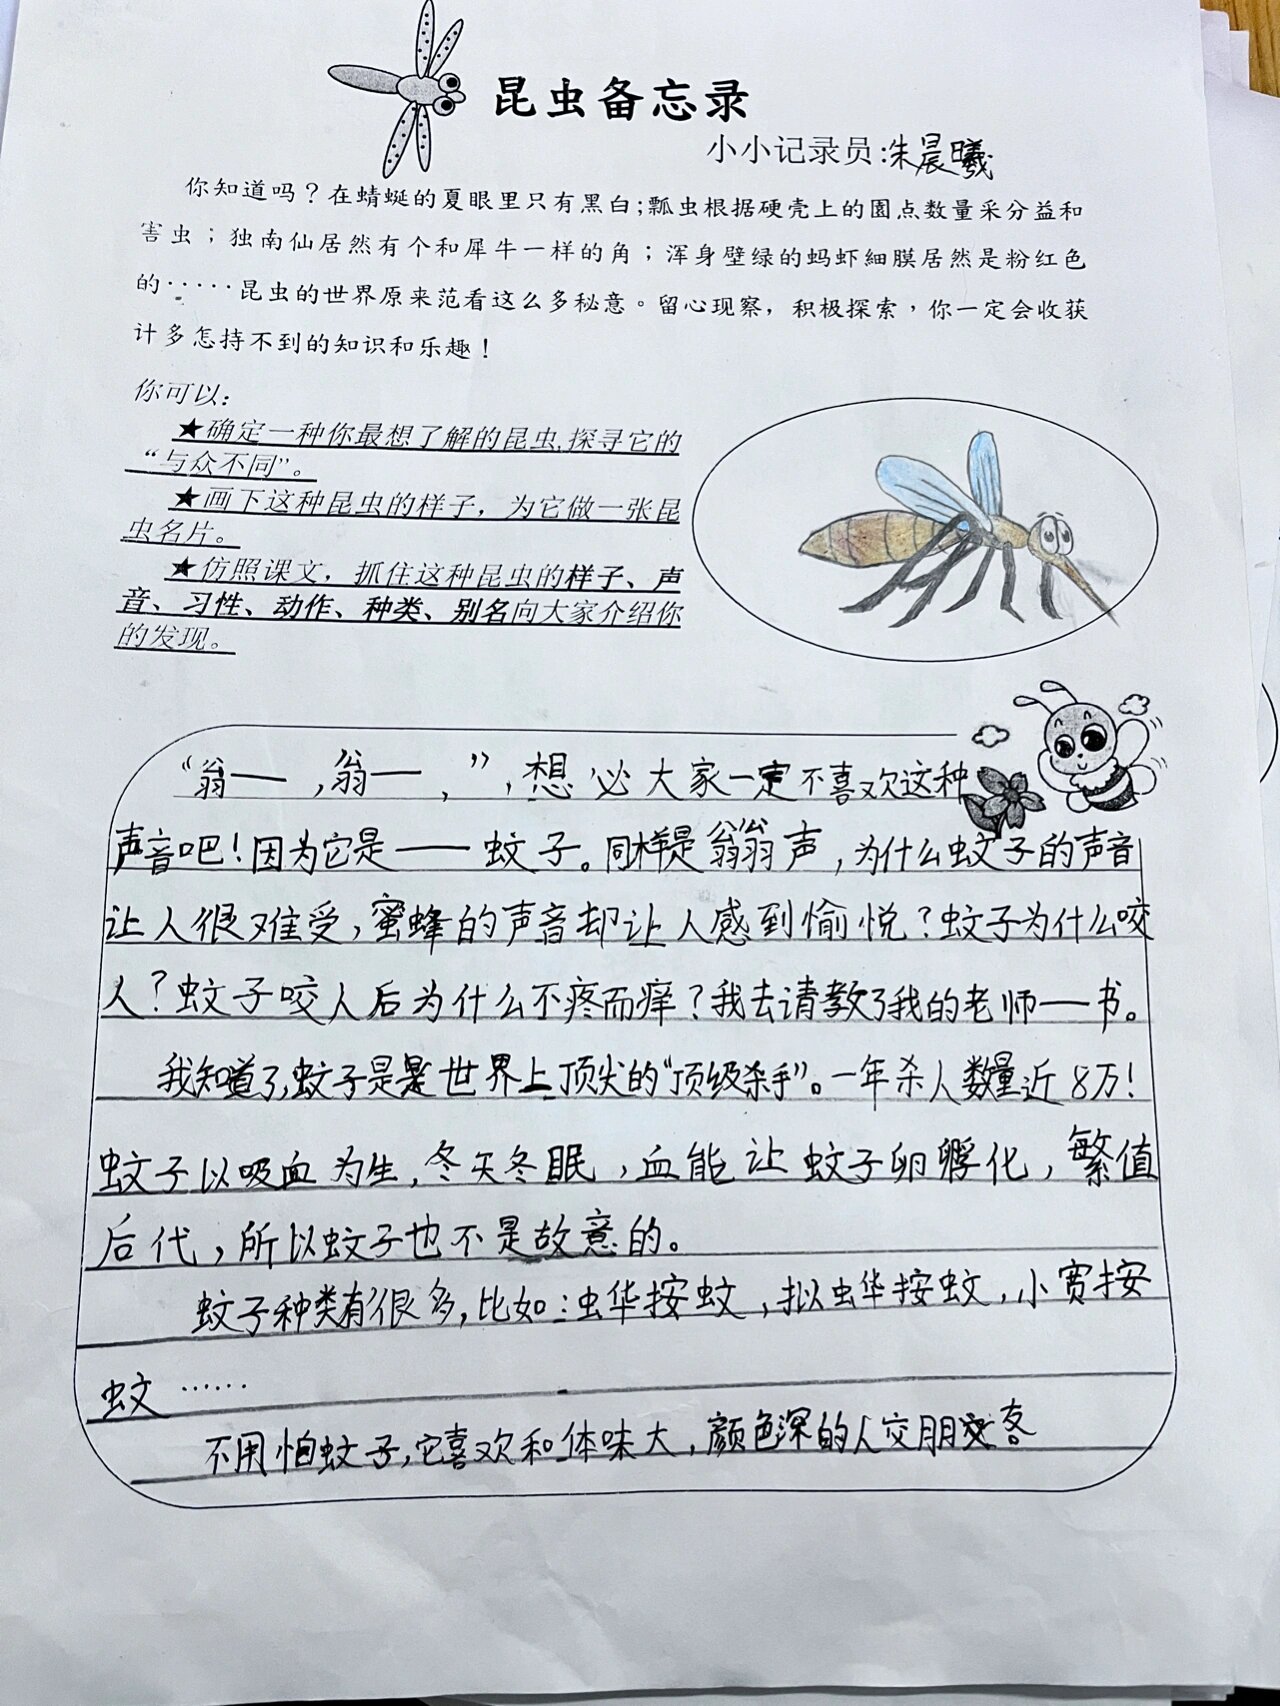 昆虫备忘录
小小记录员:朱晨曦
你知道吗？在蜻蜓的夏眼里只有黑白;瓢虫根据硬壳上的圆点数量采分益和
害虫；独南仙居然有个和犀牛一样的角；浑身壁绿的蚂虾細膜居然是粉红色
的·····昆虫的世界原来范看这么多秘意。留心现察，积极探索，你一定会收获
计多怎持不到的知识和乐趣！
你可以：
★确定一种你最想了解的昆虫,探寻它的
“与众不同”。
★画下这种昆虫的样子，为它做一张昆
虫名片。
★仿照课文，抓住这种昆虫的样子、声
音、习性、动作、种类、别名向大家介绍你
的发现。
“翁——,翁——,”,想必大家一定不喜欢这种
声音吧！因为它是——蚊子。同样是翁翁声,为什么蚊子的声音
让人很难受,蜜蜂的声音却让人感到愉悦？蚊子为什么咬
人？蚊子咬人后为什么不疼而痒？我去请教了我的老师——书。
我知道了,蚊子是世界上顶尖的“顶级杀手”。一年杀人数量近8万！
蚊子以吸血为生,冬天冬眠,血能让蚊子卵孵化,繁值
后代,所以蚊子也不是故意的。
蚊子种类有很多,比如:虫华按蚊,拟虫华按蚊,小赛按
蚊……
不用怕蚊子,它喜欢和体味大,颜色深的人交朋友